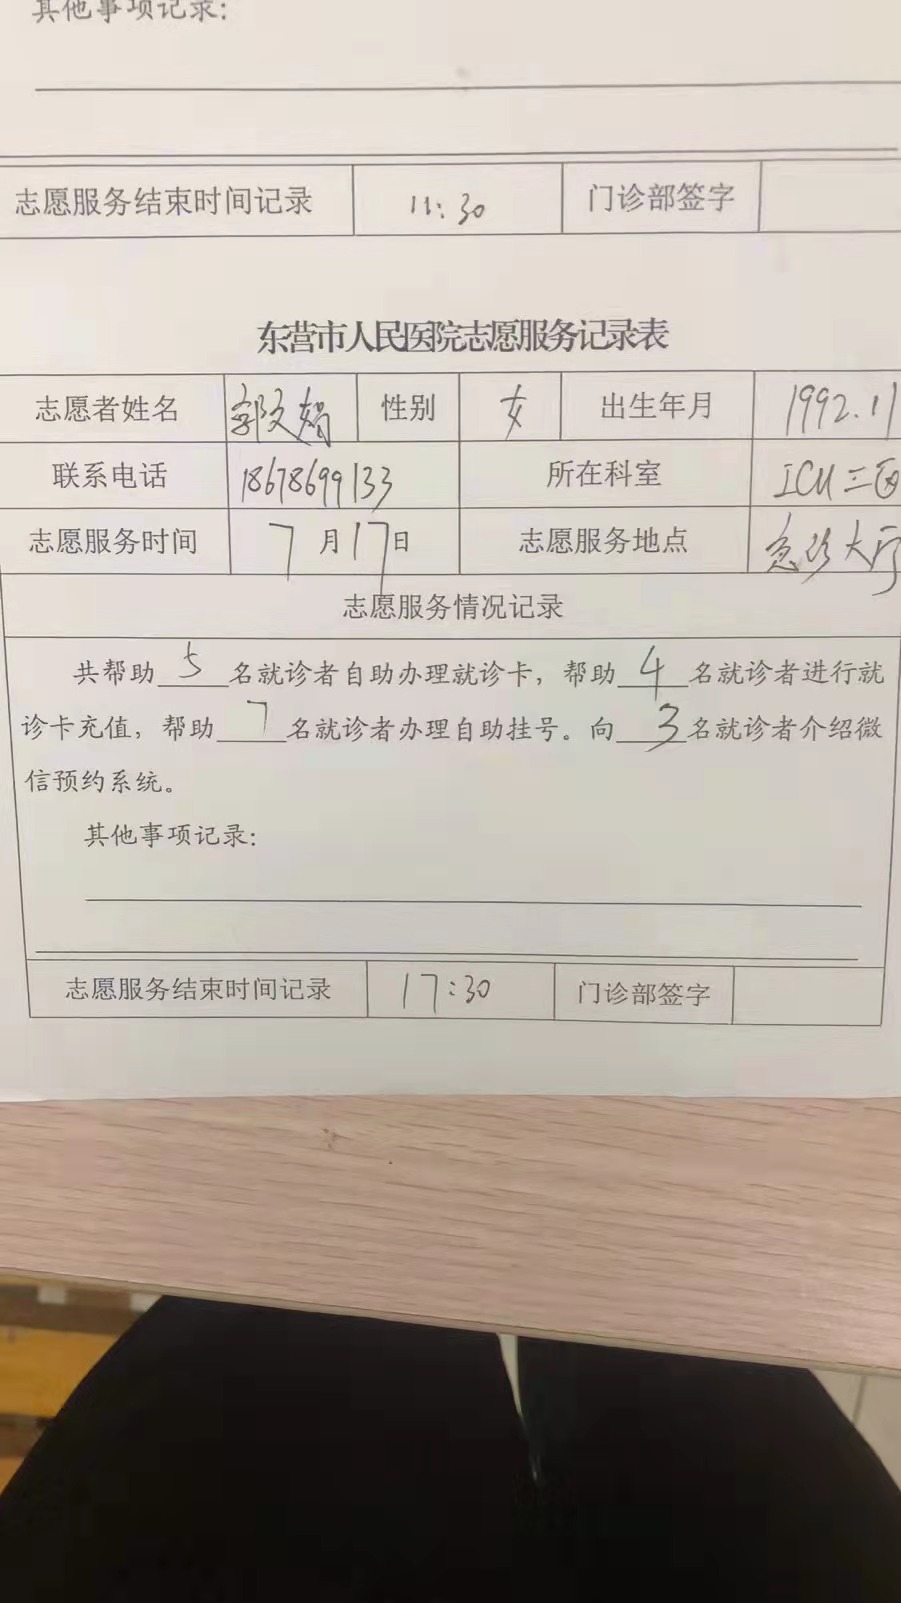 其他事项记录：
志愿服务结束时间记录 11:30 门诊部签字
东营市人民医院志愿服务记录表
志愿者姓名 郭文娟 性别 女 出生年月 1992.11
联系电话 18678699133 所在科室 ICU三区
志愿服务时间 7月17日 志愿服务地点 急诊大厅
志愿服务情况记录
共帮助 5 名就诊者自助办理就诊卡，帮助 4 名就诊者进行就
诊卡充值，帮助 7 名就诊者办理自助挂号。向 3 名就诊者介绍微
信预约系统。
其他事项记录：
志愿服务结束时间记录 17:30 门诊部签字